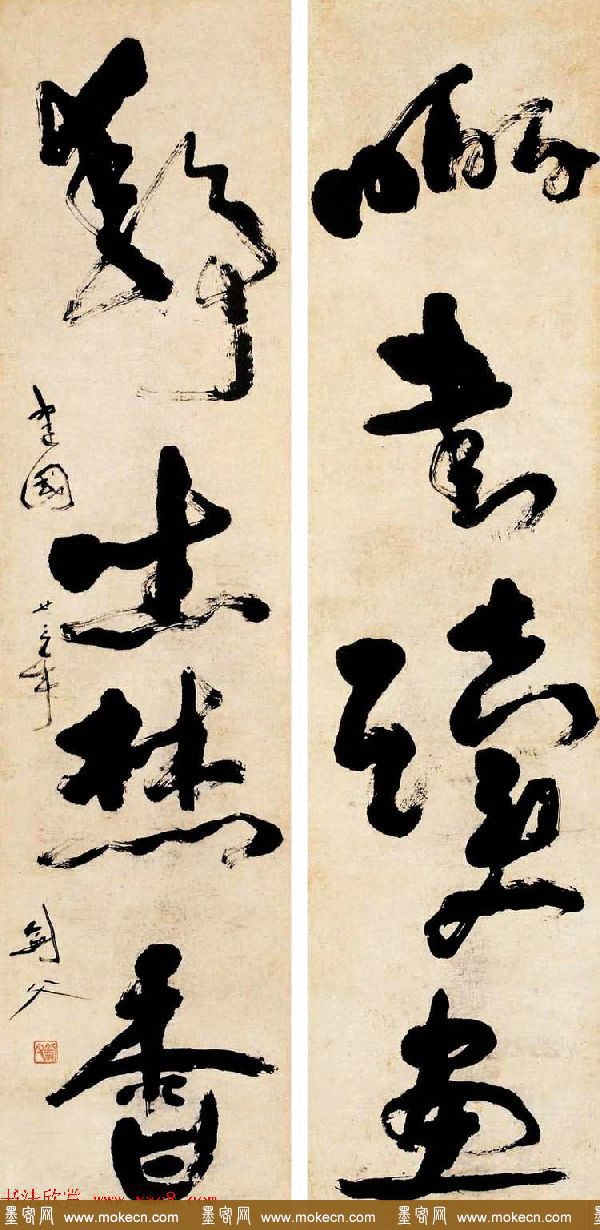 書讀畫
坐焚香
建國廿三年
劍父
书法欣赏
墨密网 www.mokecn.com 墨密网 www.mokecn.com 墨密网 www.mokecn.com